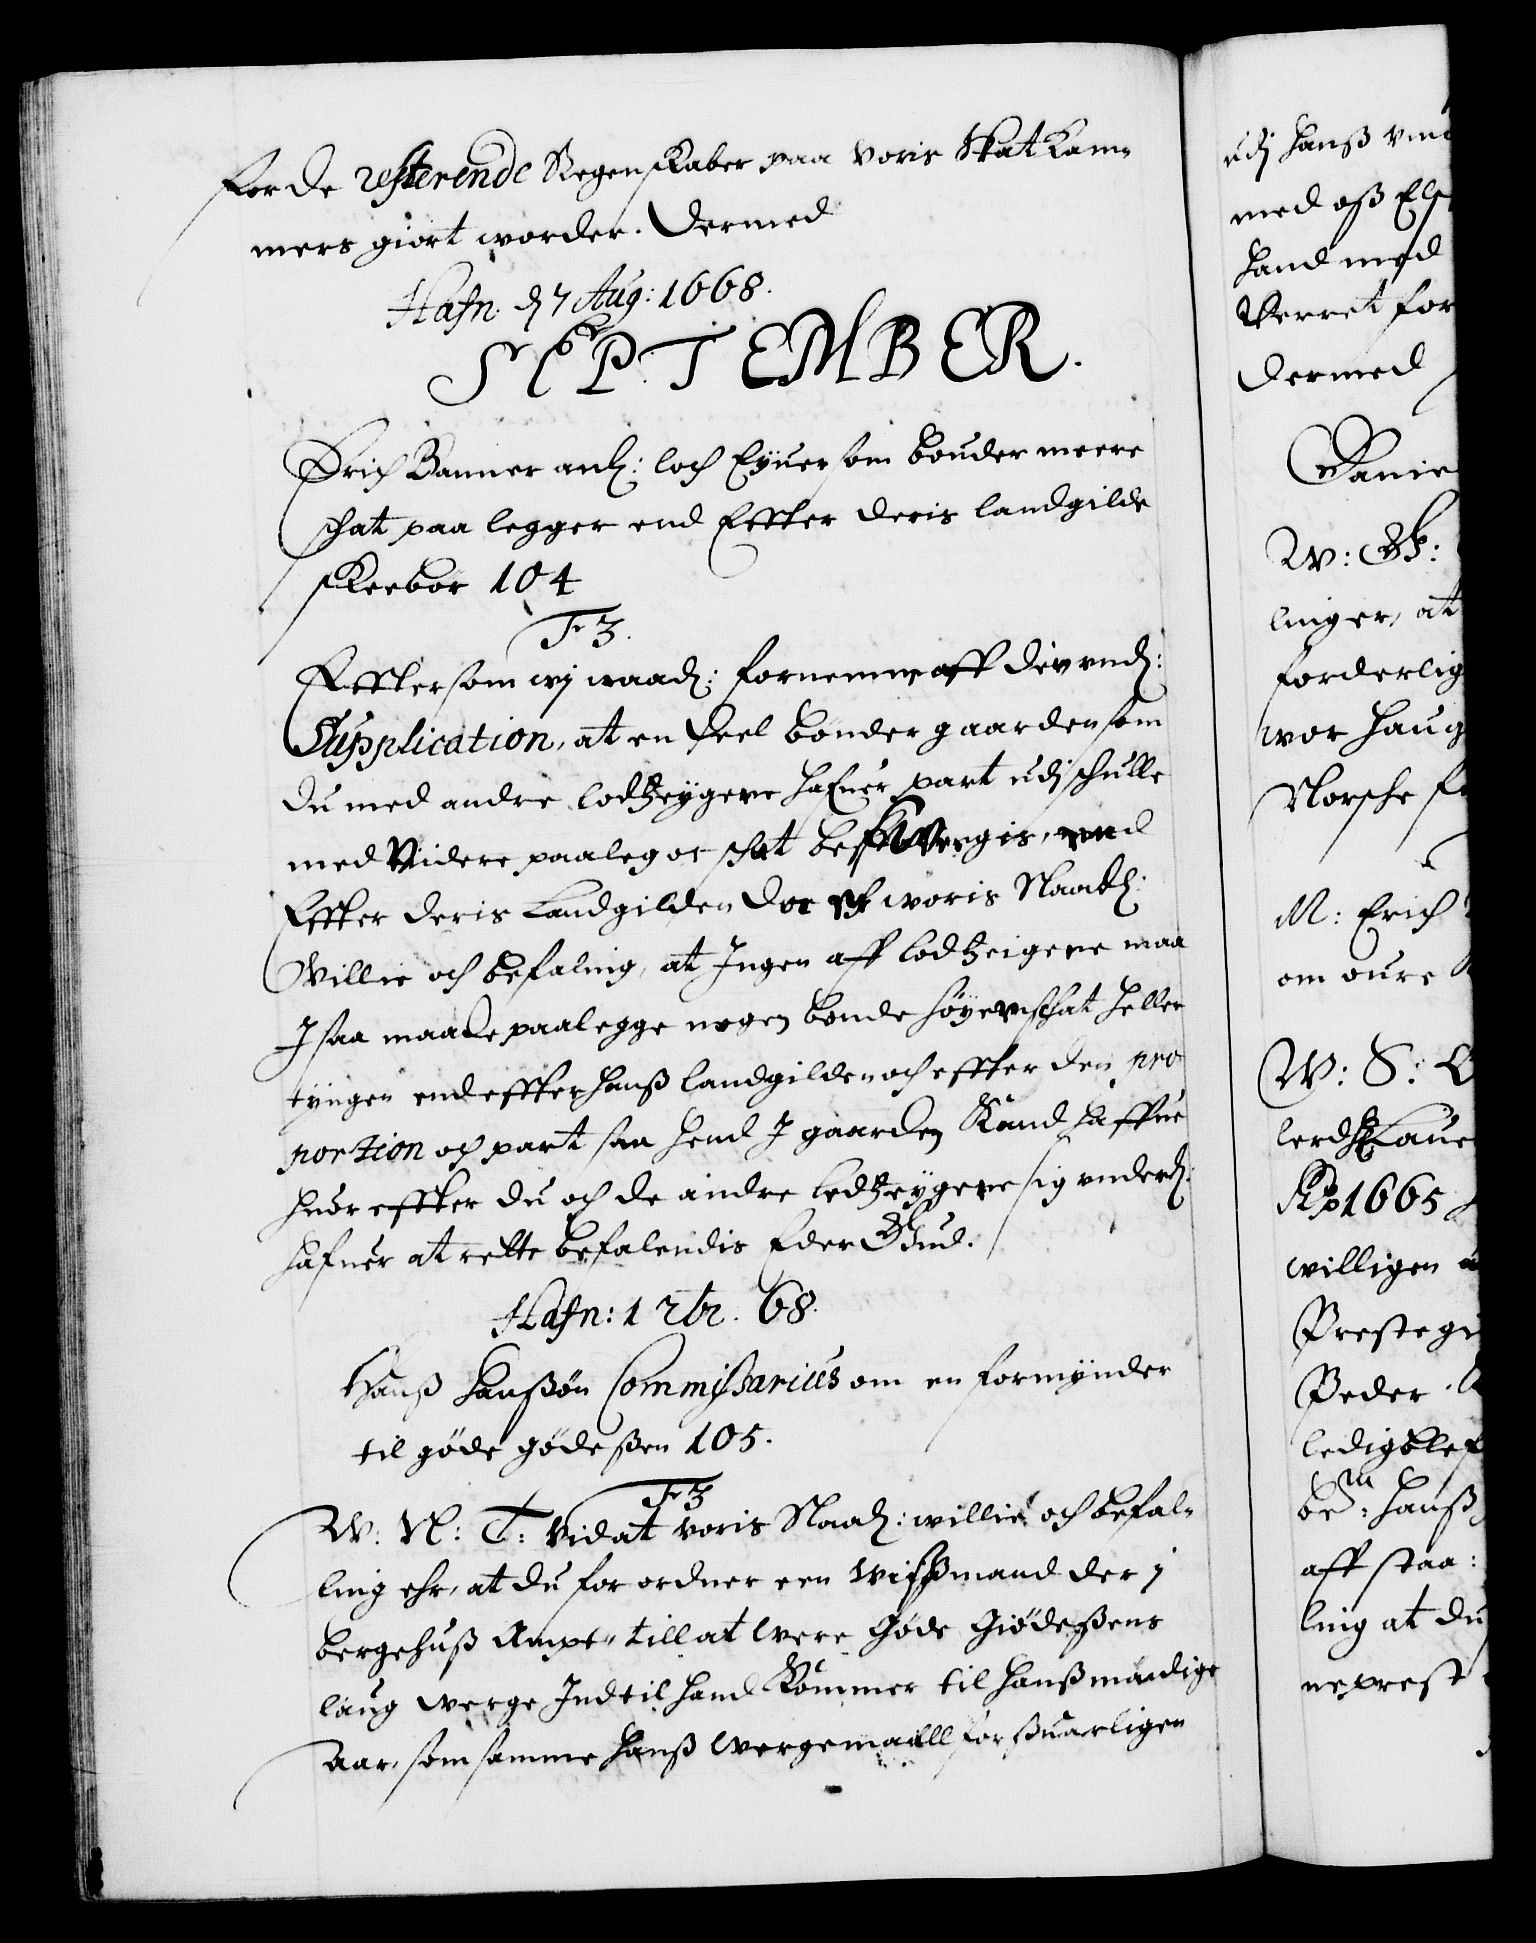 for de resterende Regenskaber paa voris Skat Kam¬
mers giort worder. Dermed
Hafn. d 7 Aug: 1668.
SEPTEMBER.
Erich Banner anl: loch Eyuer som bønder meere
schat paa legger end Effter deris landgilde
skeebor 104
F3.
Effter som wj naad: fornemme aff din und:
Supplication, at en Deel bønder gaarder som
du med andre lodtzeygere hafuer part udj schulle
med Videre paalegoe schat besvergis, end
Effter deris Landgilde, Da er woris Naad:
Willie och befaling, at Ingen aff lodtzeigerne maa
I saa maade paalegge nogen bonde høyere schat heller
tynger end effter hanß landgilde och effter den pro
portion och part saa hand I gaarden Kand haffue
huor effter du och de andre lodtzeygere sig underd:
hafuer at rette befalendis Eder Gud.
Hafn: 1 7br. 68.
Hanß Hanßøn Commissarius om en formynder
til gøde gødeßen 105.
F3
W: N: T: Vid at voris Naad: willie och befal¬
ling ehr, at du forordner een wißmand der i
bergehuß Ampt, till at were Gøde Giødeßens
laug werge Indtil hand Kommer til hanß myndige
Aar, som samme hanß wergemaall forßuarligen
udj hanß
med oß
hand med
Verret for
Dermed
W:
linger, at
forderlig
wor
Norsche
M: Erich
om
W: S:
1665
willigen
Preste
Peder
ledig
be: hanß
aff staa:
ling at du